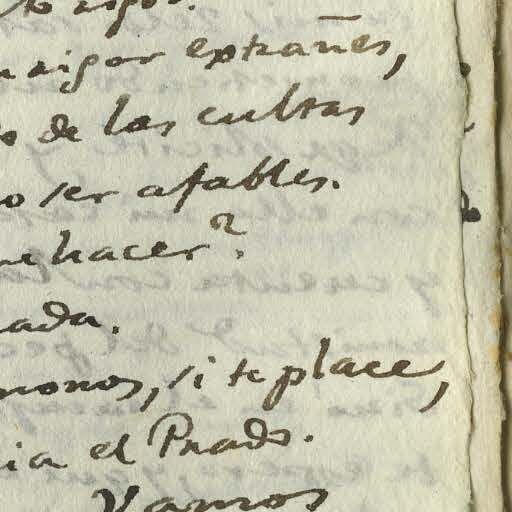 rigor extrañes,
de las cultas
no ser afables.
hacer?
nada.
monos, si te place,
cia el Prado.
Vamos